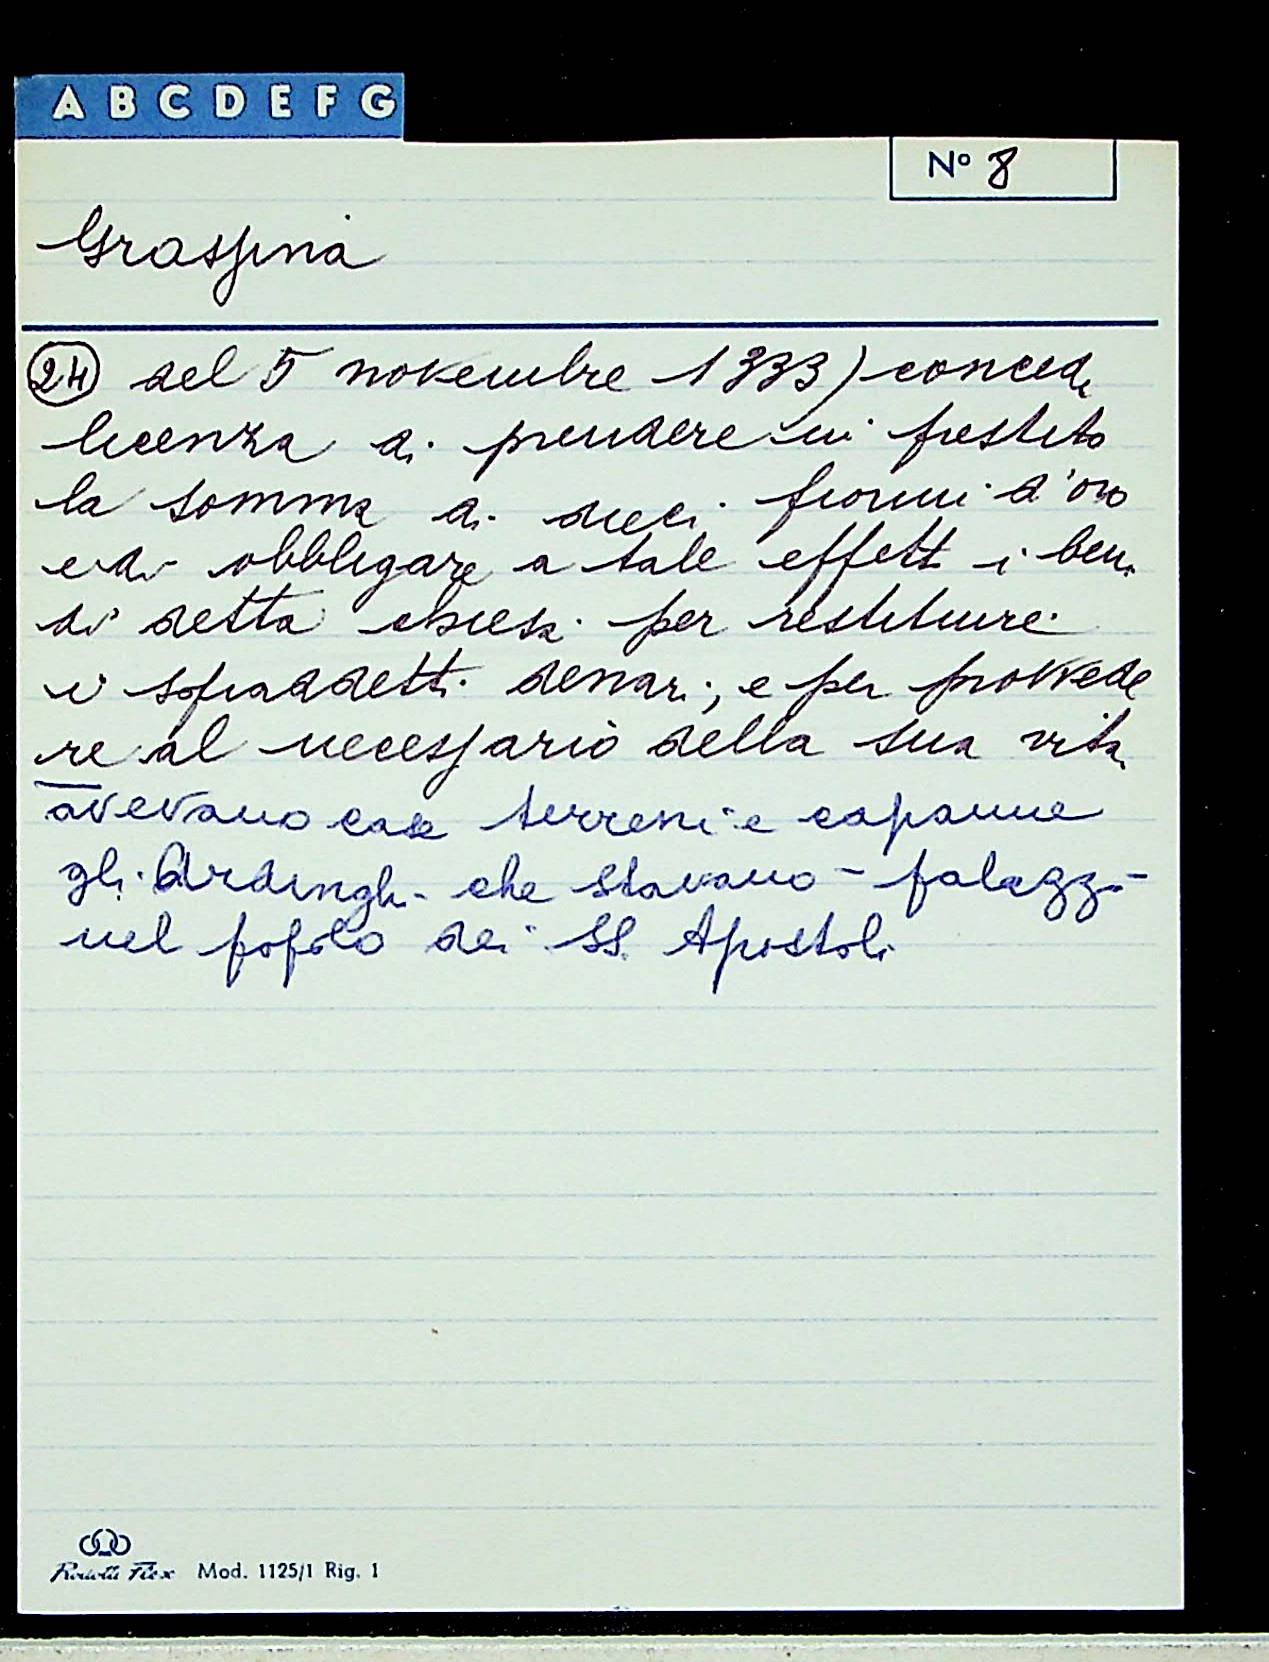 A B C D E F G
Nº 8
Grassina
24 del 5 novembre 1333) concede
licenza di prendere in prestito
la somma di dieci fiorini d'oro
e di obbligare a tale effetto i beni
di detta chiesa per restituire
i sopraddetti denari, e per provvede
re al necessario della sua vita
avevano case terreni e capanne
gli Ardinghi che stavano - palazzo -
nel popolo dei SS. Apostoli
Mod. 1125/1 Rig. 1